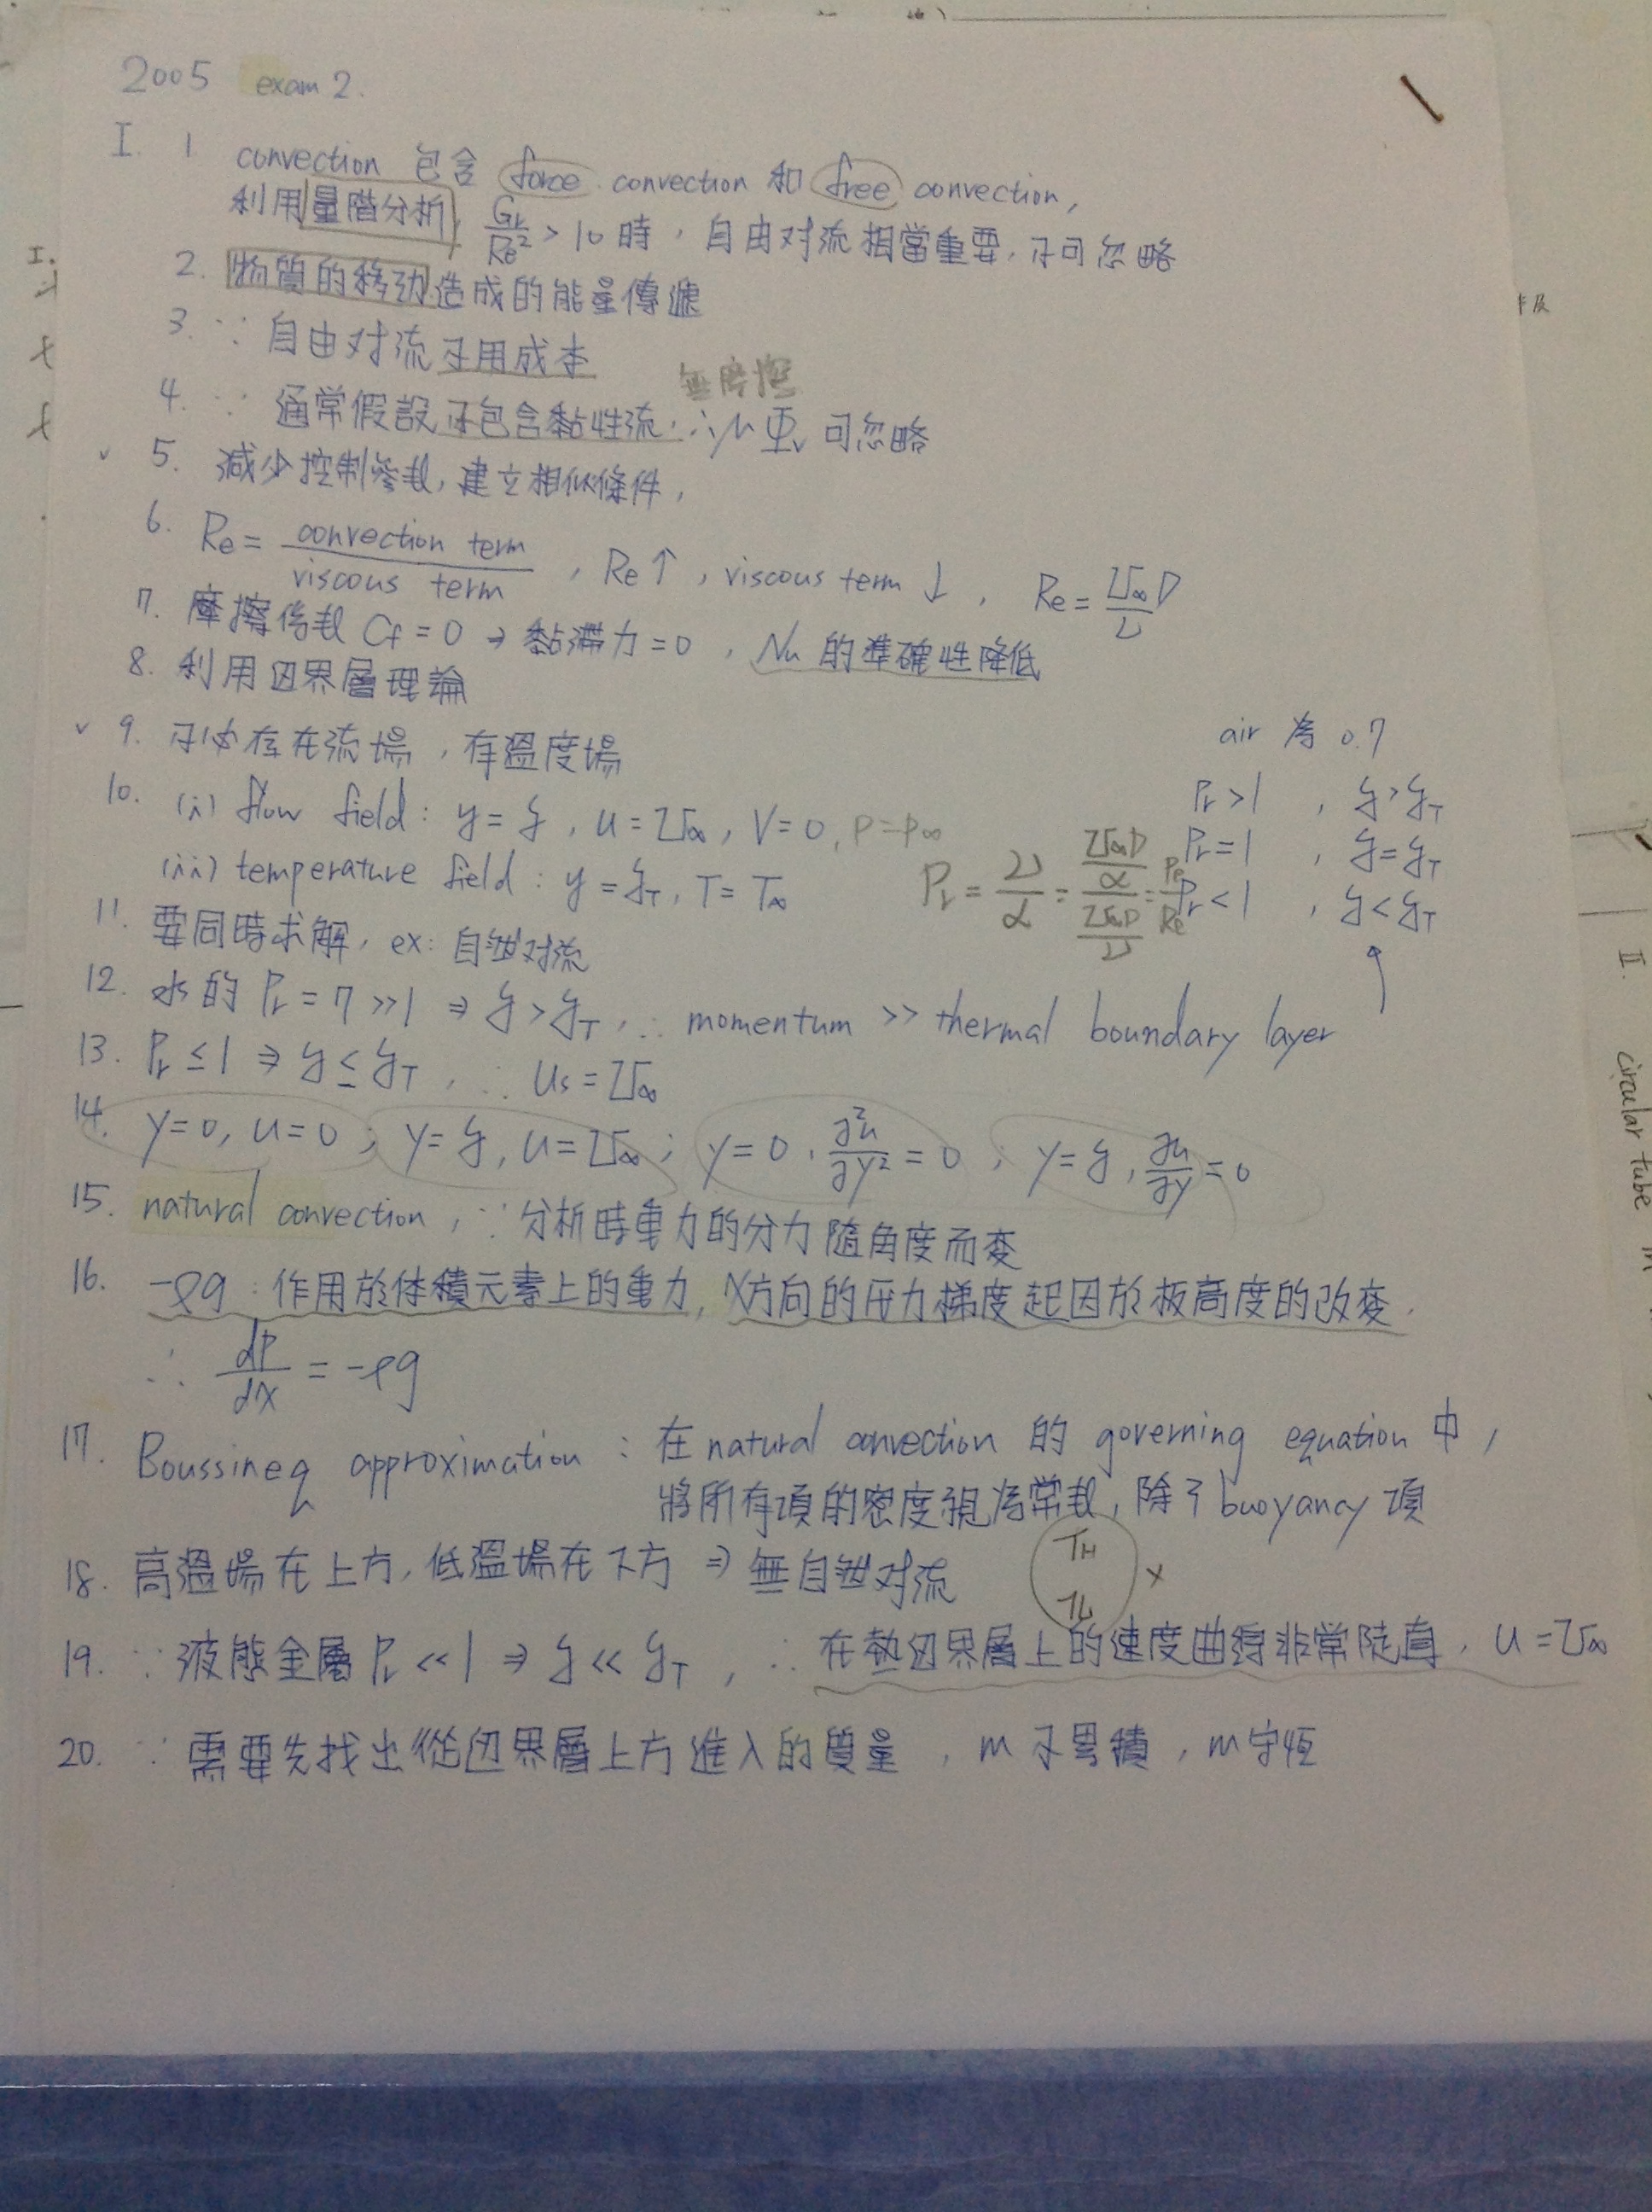 2005 exam 2.
I. 1 convection 包含 force convection 和 free convection,
利用量階分析, Gr/Re² > 10 時, 自由对流相當重要, 不可忽略
2. 物質的移动造成的能量傳遞
3. ∵ 自由对流不用成本
無摩擦
4. ∵ 通常假設不包含黏性流 ∴ μΦv 可忽略
✓ 5. 減少控制參數, 建立相似條件,
6. Re = convection term / viscous term , Re ↑ , viscous term ↓ , Re = U∞D/ν
7. 摩擦係數 Cf = 0 → 黏滯力 = 0 , Nu 的準確性降低
8. 利用边界層理論
✓ 9. 不必存在流場 , 存溫度場
air 為 0.7
10. (i) flow field : y = δ , u = U∞ , V = 0, P = P∞
Pr > 1 , δ > δT
Pr = 1 , δ = δT
Pr < 1 , δ < δT
(ii) temperature field : y = δT , T = T∞
Pr = ν/α = (U∞D/α)/(U∞D/ν) = Pe/Re
11. 要同時求解, ex: 自然对流
12. 水的 Pr = 7 >> 1 ⇒ δ > δT , ∴ momentum >> thermal boundary layer
13. Pr ≤ 1 ⇒ δ ≤ δT , ∵ us = U∞
14. y = 0, u = 0 ; y = δ, u = U∞ ; y = 0 , ∂²u/∂y² = 0 , y = δ , ∂u/∂y = 0
15. natural convection , ∵ 分析時重力的分力隨角度而变
16. -ρg : 作用於体積元素上的重力, X方向的压力梯度起因於板高度的改变.
∴ dP/dX = -ρg
17. Boussineq approximation : 在 natural convection 的 governing equation 中 ,
將所有項的密度視為常數, 除了 buoyancy 項
18. 高溫場在上方, 低溫場在下方 ⇒ 無自然对流
TH
TL
×
19. ∵ 液態金屬 Pr << 1 ⇒ δ << δT , ∴ 在熱边界層上的速度曲線非常陡直 , u = U∞
20. ∵ 需要先找出從边界層上方進入的質量 , m 不累積 , m 守恆
I.
II. circular tube